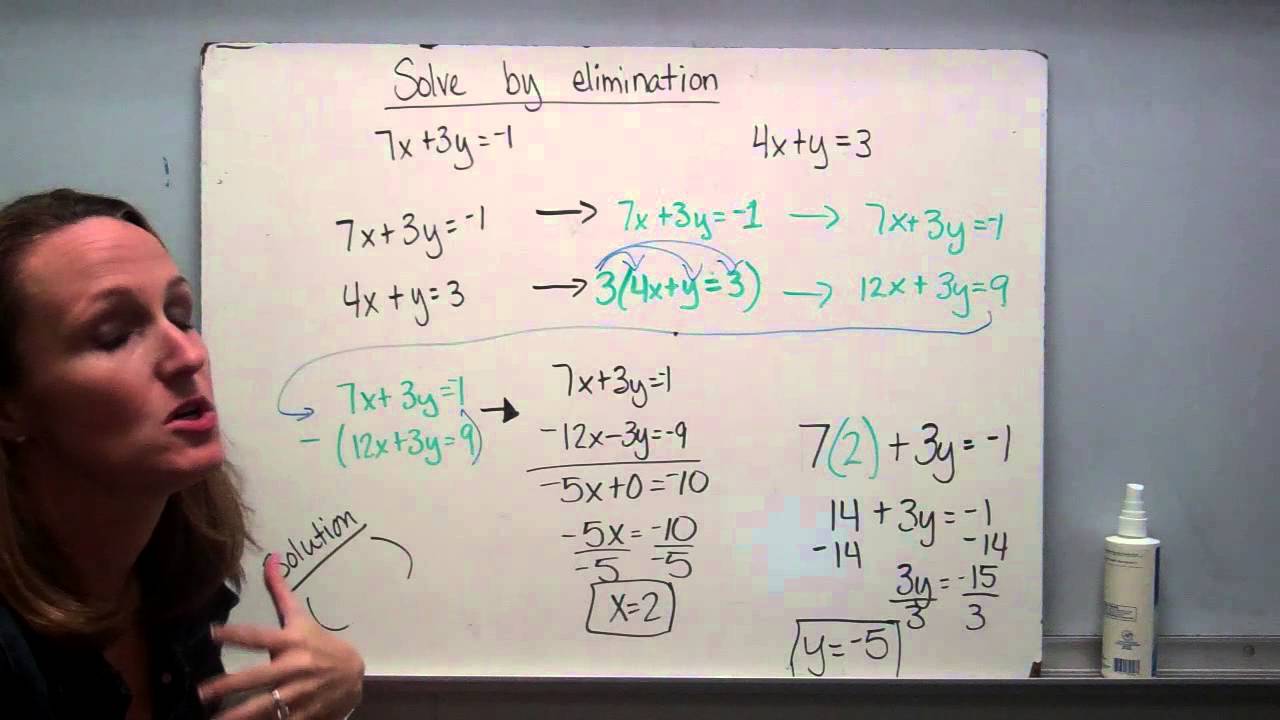 Solve by elimination
7x+3y=-1 4x+y=3
7x+3y=-1 → 7x+3y=-1 → 7x+3y=-1
4x+y=3 → 3(4x+y=3) → 12x+3y=9
7x+3y=-1 →
-(12x+3y=9)
7x+3y=-1
-12x-3y=-9
-5x+0=-10
-5x=-10
-5 -5
x=2
7(2)+3y=-1
14+3y=-1
-14 -14
3y=-15
3 3
y=-5
Solution
( )